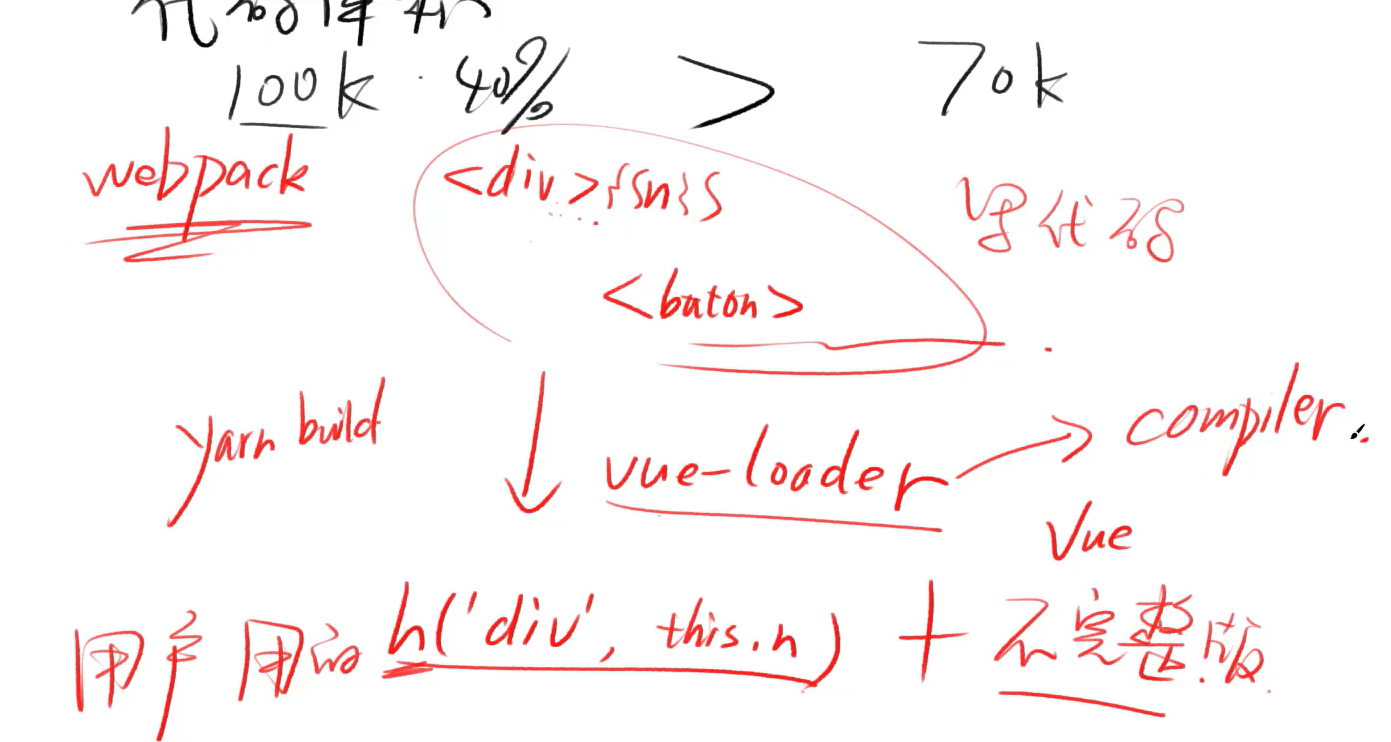 代码体积
100k · 40% > 70k
webpack <div>{{n}} 写代码
<baton>
yarn build vue-loader → compiler
Vue
用户用的 h('div', this.n) + 不完整版